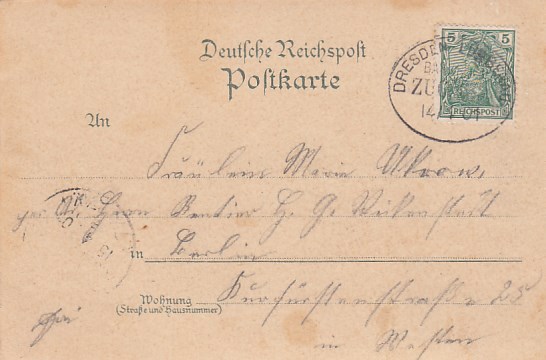 Deutsche Reichspost
Postkarte
5 5
REICHSPOST
DRESDEN
BA
ZU
14
An
Fräulein Marie Ukrow,
Herrn Rentier H. G.
in Berlin
Wohnung
(Straße und Hausnummer)
Kurfürstenstraße 25
frei
in Westen